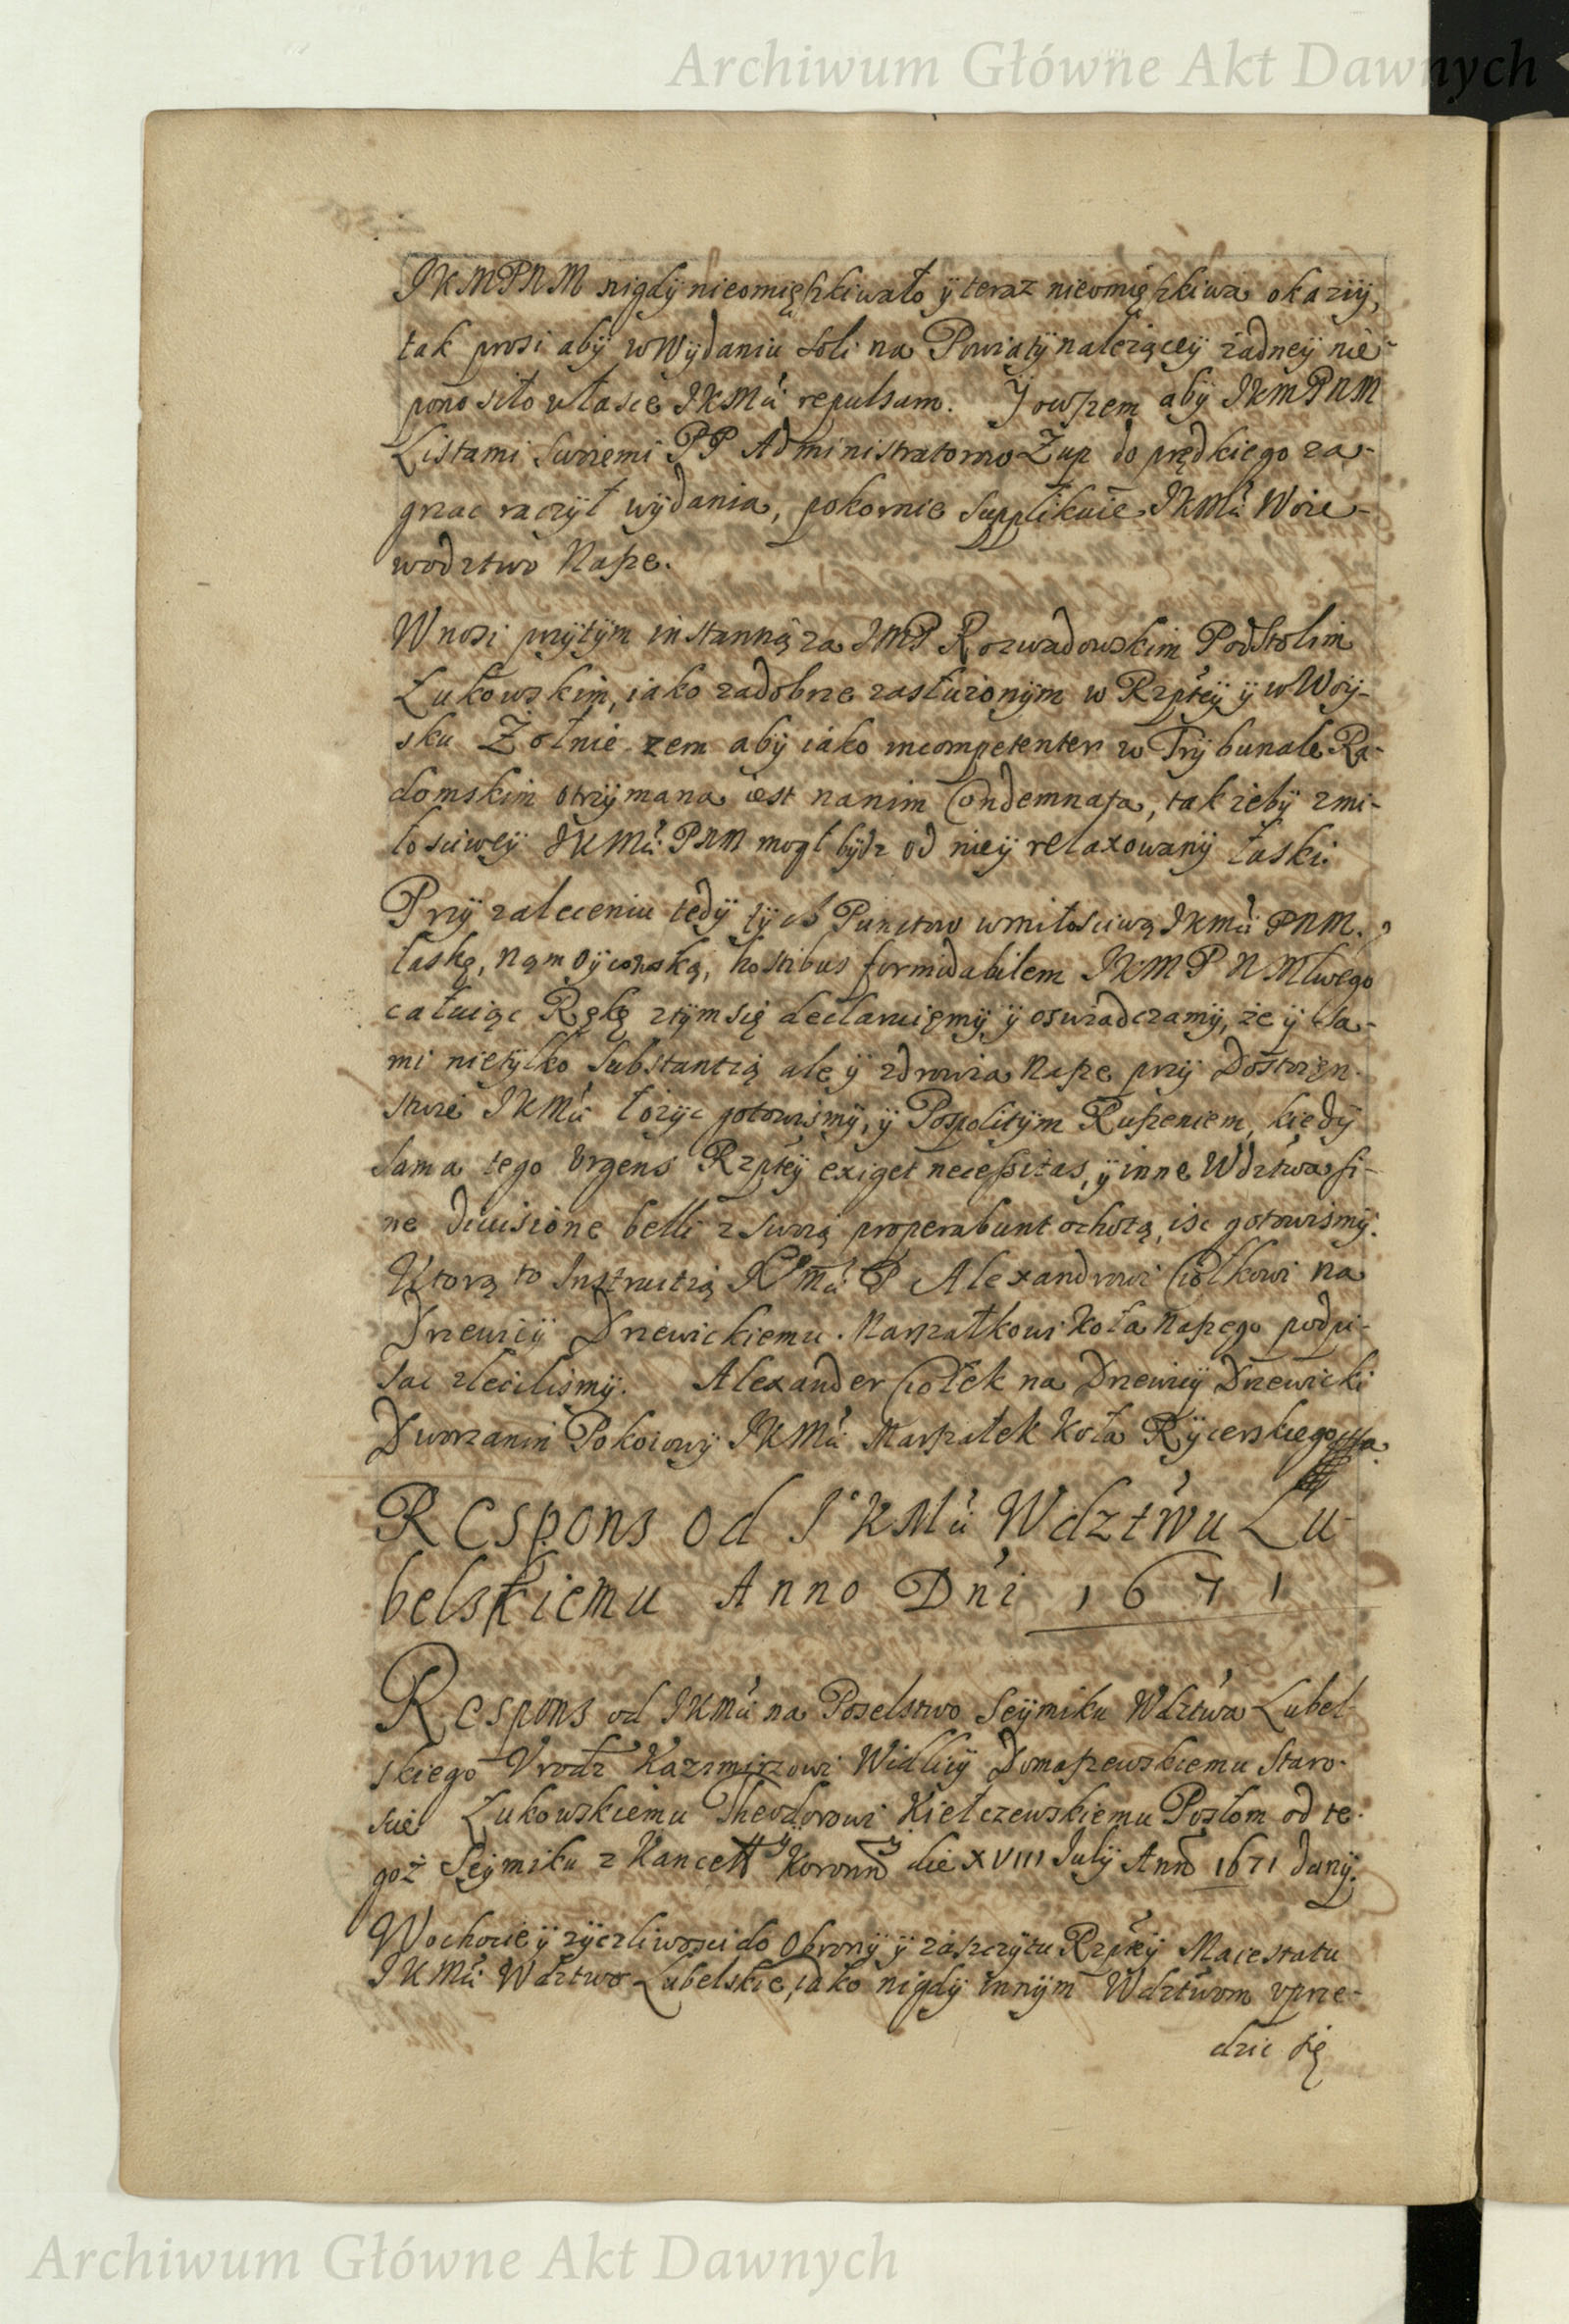 Archiwum Główne Akt Dawnych
JKMPNM nigdÿ nieomięszkiwało ÿ teraz nieomięszkiwa okaziÿ,
tak prosi abÿ w Wÿdaniu Soli na Powiatÿ należącÿ żadneÿ nie
ponosiło w łasce JKMći repulsam. Y owszem abÿ JKMPNM
Listami Swiemi PP Administratorow Żup do prędkiego za-
grzac raczÿł wÿdania, pokornie Supplikuie JKMći Woie-
wodztwo Nasze.
Wnosi przÿtÿm instantią za JMP Rozwadowskim Podstolim
Łukowskim, iako zadobrze zasłużonÿm w Rzpteÿ ÿ w Woÿ-
sku Żołnie-rzem abÿ iako incompetenter w Trÿbunale Ra-
domskim otrzÿmana iest nanim Condemnata, tak żebÿ zmi-
łosciweÿ JKMći PNM mogł bÿdz od nieÿ relaxowanÿ łaski.
Przÿ zaleceniu tedÿ tÿch Punctow w miłosciwą JKmći PNM.
łaskę, Nam Oÿcowską, hostibus formidabilem JKMPNMłwego
całuiąc Rękę ztÿm się declaruięmÿ ÿ oswiadczamÿ, że ÿ Sa-
mi nietÿlko Substantią ale ÿ zdrowia Nasze przÿ Dostoięn-
stwie JKMći łożÿc gotowismÿ, ÿ Pospolitÿm Ruszeniem, kiedÿ
Sama tego Vrgens Rzpteÿ exiget necessitas, ÿ inne Wdztwa si-
ne diuisione belli z Swoią properabunt ochotą, isc gotowismÿ.
Ktorą to Instructią JKmći P Alexandrowi Ciołkowi na
Drzewicÿ Drzewickiemu. Marszałkowi Koła Naszego podpi-
sac zlecilismÿ. Alexander Ciołek na Drzewicÿ Drzewicki
Dworzanin Pokoiowÿ JKMći Marszałek Koła Rÿcerskiego
Respons od JKMći Wdztwu Lu-
belskiemu Anno Dni 1671
Respons od JKMći na Poselstwo Seÿmiku Wdztwa Lubel-
skiego Vrodz Kazimirzowi Widlicÿ Domaszewskiemu Staro-
scie Łukowskiemu Theodorowi Kiełczewskiemu Posłom od te-
goż Seÿmiku z Kancell Koronn die XVIII Julÿ Ann 1671 danÿ.
W ochocie ÿ zÿczliwosci do Obronÿ ÿ zaszczÿtu Rzpteÿ Maiestatu
JKMći Wdztwo Lubelskie, iako nigdÿ innÿm Wdztwom vprze-
dzic się
Archiwum Główne Akt Dawnych